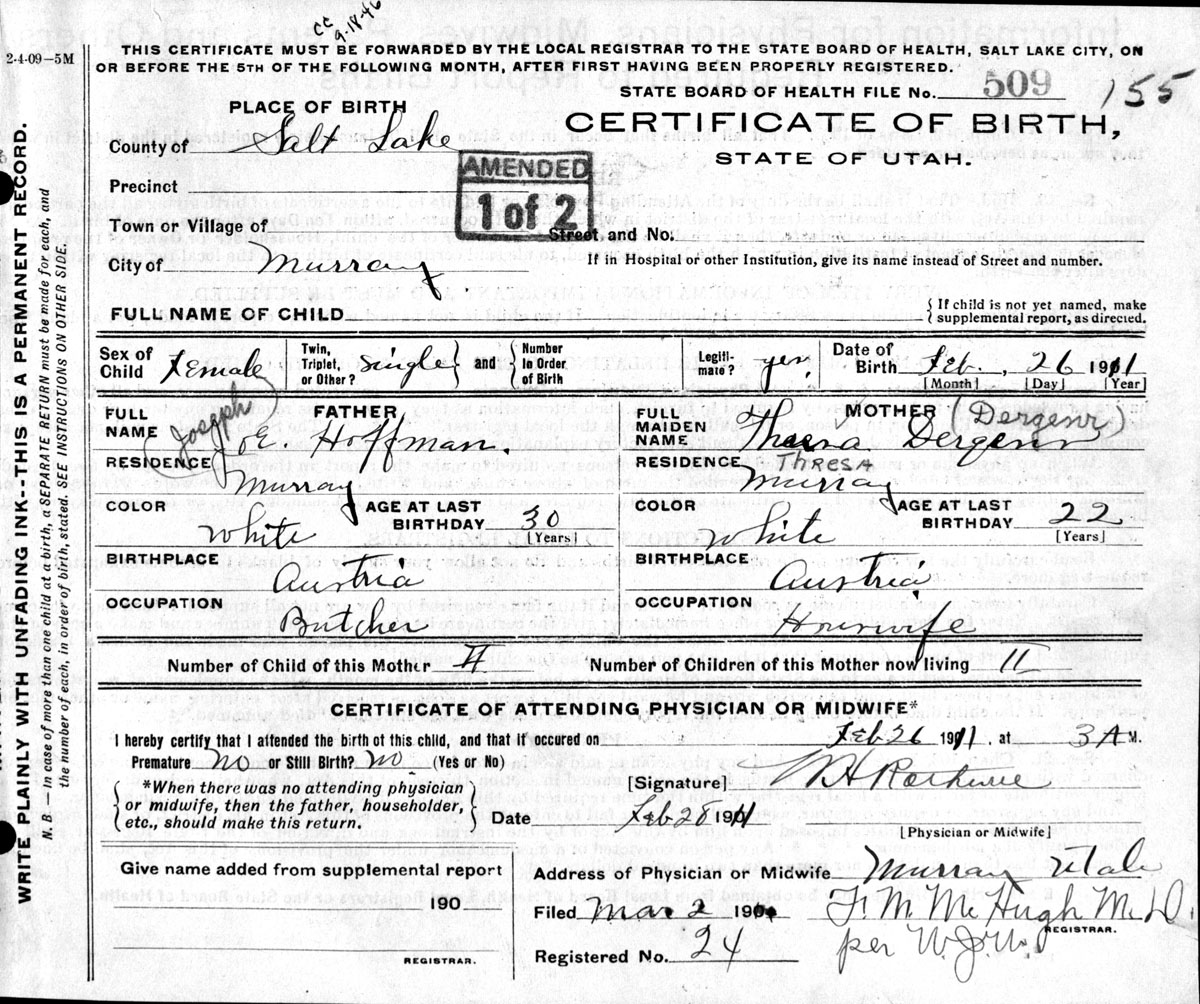 cc
9-18-46
2-4-09—5M
THIS CERTIFICATE MUST BE FORWARDED BY THE LOCAL REGISTRAR TO THE STATE BOARD OF HEALTH, SALT LAKE CITY, ON
OR BEFORE THE 5TH OF THE FOLLOWING MONTH, AFTER FIRST HAVING BEEN PROPERLY REGISTERED.
STATE BOARD OF HEALTH FILE No. 509
155
PLACE OF BIRTH
CERTIFICATE OF BIRTH,
STATE OF UTAH.
County of Salt Lake
AMENDED
1 of 2
Precinct
Town or Village of
Street and No.
City of Murray
If in Hospital or other Institution, give its name instead of Street and number.
FULL NAME OF CHILD
{If child is not yet named, make
supplemental report, as directed.
Sex of Child Female
Twin, Triplet, or Other? Single } and { Number In Order of Birth
Legiti-mate? yes
Date of Birth Feb. 26 1911
[Month] [Day] [Year]
FULL NAME FATHER (Joseph) Joe Hoffman.
FULL MAIDEN NAME MOTHER (Dergenz)
RESIDENCE Murray
RESIDENCE THRESA Murray
COLOR White
AGE AT LAST BIRTHDAY 30 [Years]
COLOR White
AGE AT LAST BIRTHDAY 22 [Years]
BIRTHPLACE Austria
BIRTHPLACE Austria
OCCUPATION Butcher
OCCUPATION Housewife
Number of Child of this Mother II Number of Children of this Mother now living II
CERTIFICATE OF ATTENDING PHYSICIAN OR MIDWIFE*
I hereby certify that I attended the birth of this child, and that it occured on Feb 26 1911, at 3 A M.
Premature No or Still Birth? No (Yes or No)
*When there was no attending physician
or midwife, then the father, householder,
etc., should make this return.
[Signature]
Date Feb 28 1911
[Physician or Midwife]
Give name added from supplemental report
190
REGISTRAR.
Address of Physician or Midwife Murray Utah
Filed Mar 2 191
F. M. McHugh M.D.
REGISTRAR.
per W.J.W.
Registered No. 24
WRITE PLAINLY WITH UNFADING INK--THIS IS A PERMANENT RECORD.
N. B.—In case of more than one child at a birth, a SEPARATE RETURN must be made for each, and
the number of each, in order of birth, stated. SEE INSTRUCTIONS ON OTHER SIDE.